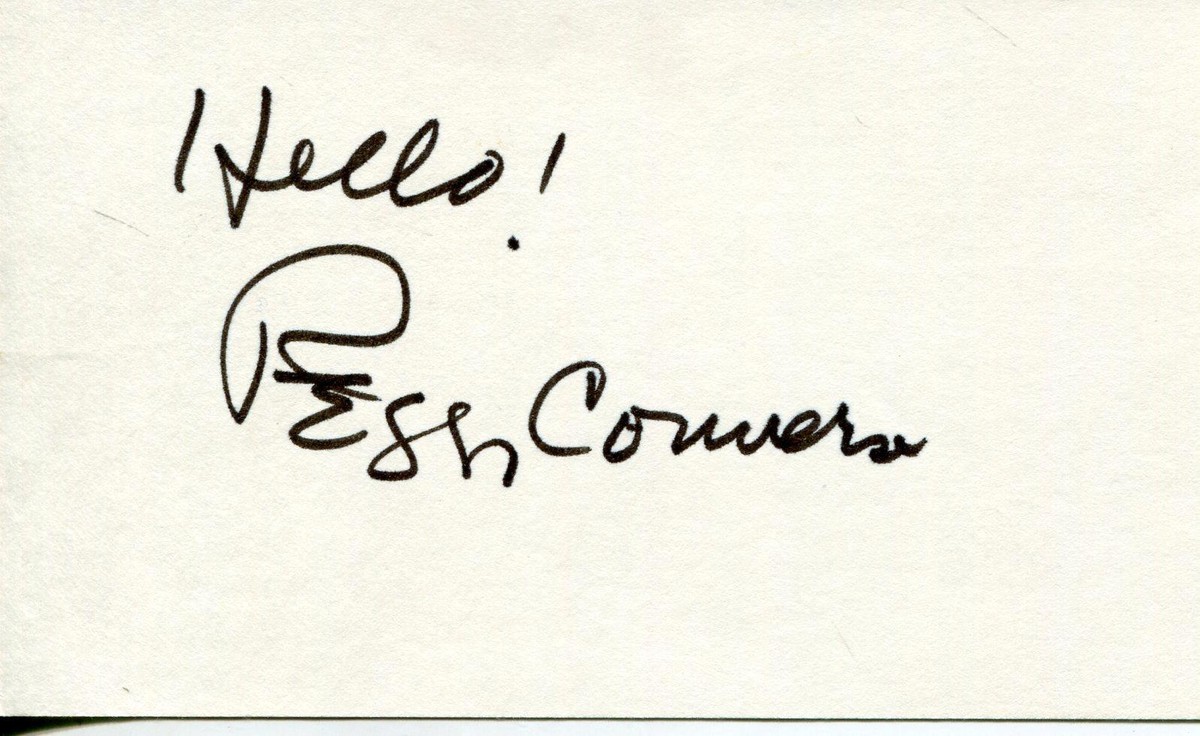 Hello!
Peggy Converse